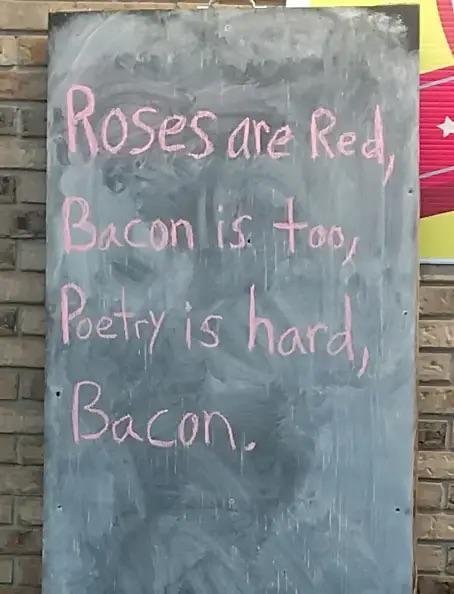 Roses are Red,
Bacon is too,
Poetry is hard,
Bacon.